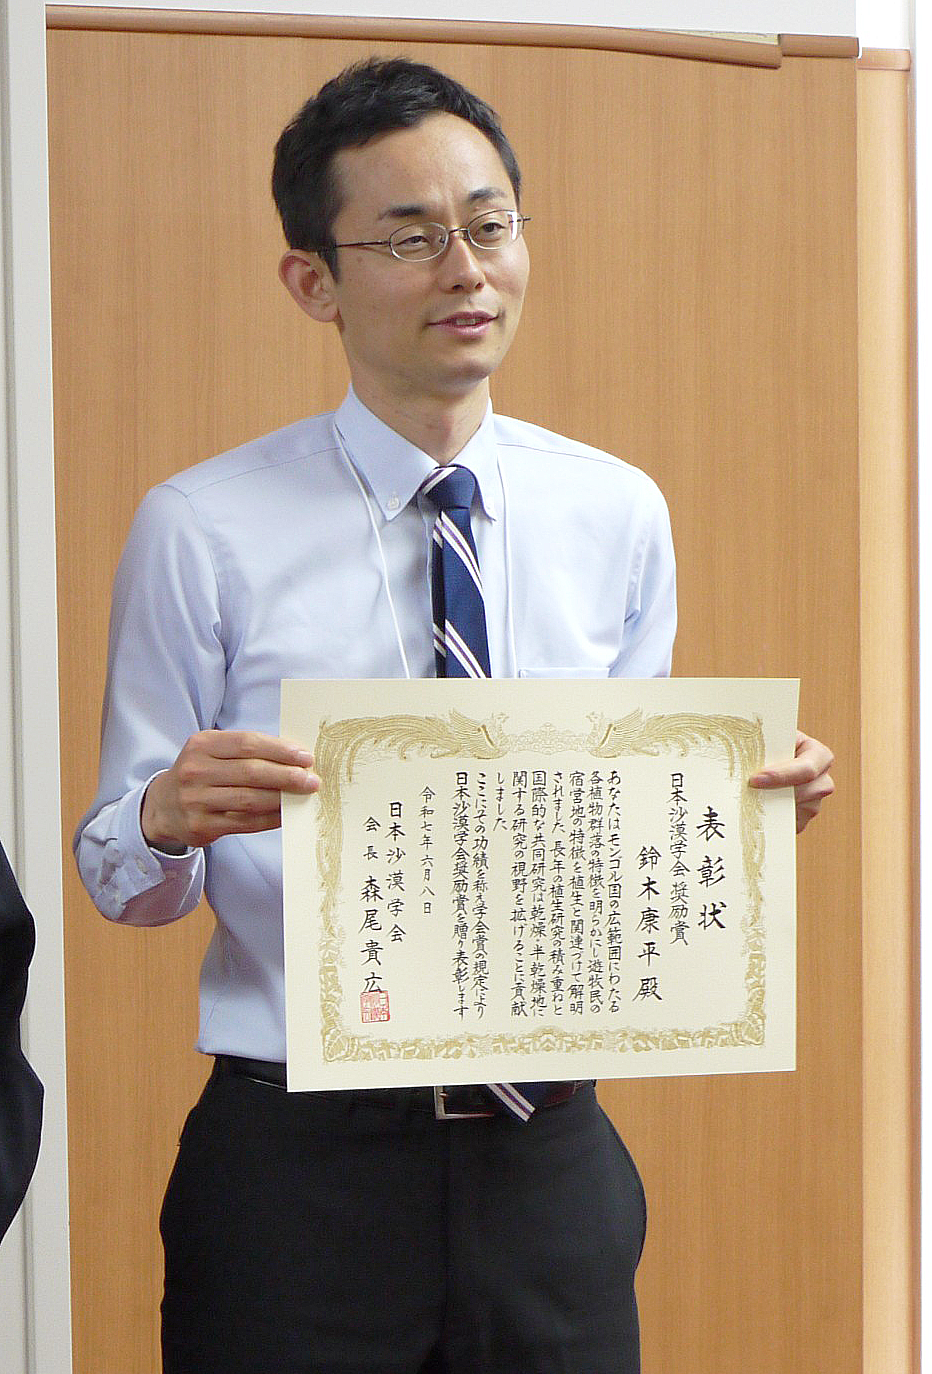 表彰状
日本沙漠学会奨励賞
鈴木康平 殿
あなたはモンゴル国の広範囲にわたる
各植物群落の特徴を明らかにし遊牧民の
宿営地の特徴を植生と関連づけて解明
されました 長年の植生研究の積み重ねと
国際的な共同研究は乾燥・半乾燥地に
関する研究の視野を拡げることに貢献
しました
ここにその功績を称え学会賞の規定により
日本沙漠学会奨励賞を贈り表彰します
令和七年六月八日
日本沙漠学会
会長 森尾貴広